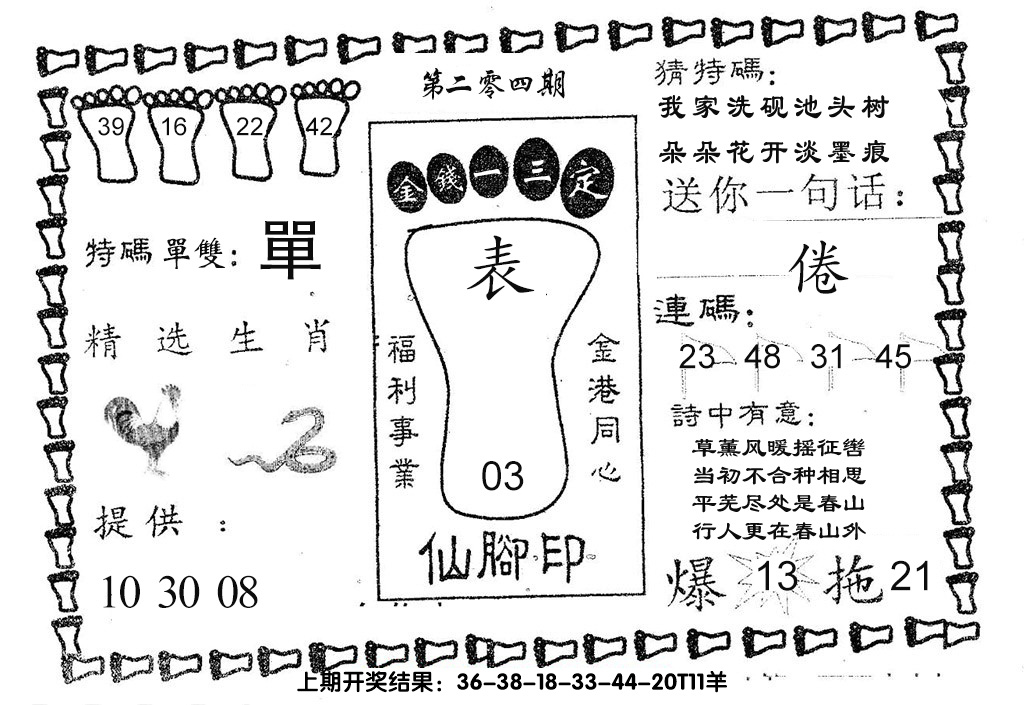 第二零四期
39 16 22 42
特碼單雙：單
精选生肖
提供：
10 30 08
金錢一三定
表
福利事業
金港同心
03
仙腳印
猜特碼：
我家洗砚池头树
朵朵花开淡墨痕
送你一句话：
倦
連碼：
23 48 31 45
詩中有意：
草薰风暖摇征辔
当初不合种相思
平芜尽处是春山
行人更在春山外
爆 13 拖 21
上期开奖结果：36-38-18-33-44-20T11羊